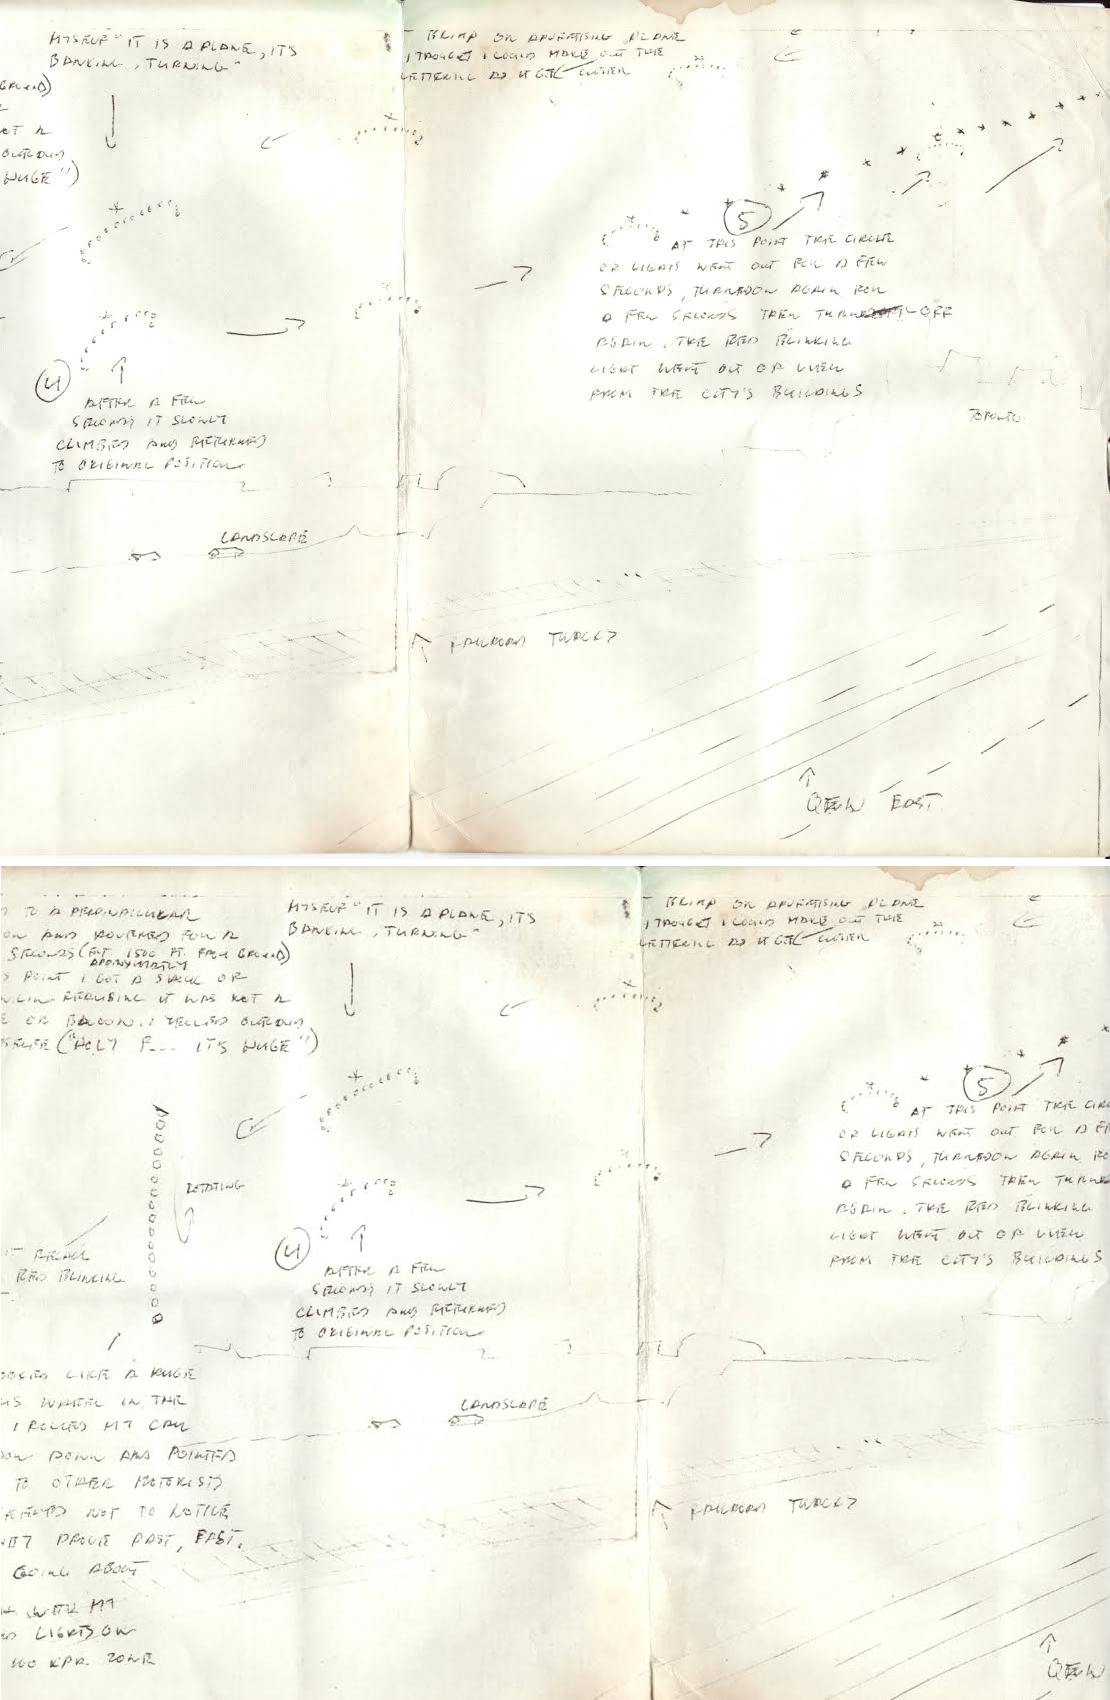 MYSELF "IT IS A PLANE, IT'S
BANKING, TURNING"
BLIMP OR ADVERTISING PLANE
I THOUGHT I COULD MAKE OUT THE
LETTERING AS IT GOT CLOSER
GROUND)
OT A
OUTLOUD
HUGE")
5
AT THIS POINT THE CIRCLE
OF LIGHTS WENT OUT FOR A FEW
SECONDS, TURNED ON AGAIN FOR
A FEW SECONDS THEN TURN OFF
AGAIN. THE RED BLINKING
LIGHT WENT OUT OF VIEW
FROM THE CITY'S BUILDINGS
TORONTO
4
AFTER A FEW
SECONDS IT SLOWLY
CLIMBED AND RETURNED
TO ORIGINAL POSITION
LANDSCAPE
RAILROAD TRACKS
QEW EAST
TO A PERPENDICULAR
ON AND HOVERED FOR A
SECONDS (EST. 1500 FT. FROM GROUND)
POINT I GOT A
REALISING IT WAS NOT A
E OR BALOON. I YELLED OUTLOUD
("HOLY F... IT'S HUGE")
MYSELF "IT IS A PLANE, IT'S
BANKING, TURNING"
BLIMP OR ADVERTISING PLANE
I THOUGHT I COULD MAKE OUT THE
LETTERING AS IT GOT CLOSER
ROTATING
RECALL
RED BLINKING
5
AT THIS POINT THE CIRC
OF LIGHTS WENT OUT FOR A FE
SECONDS, TURNED ON AGAIN FO
A FEW SECONDS THEN TURN
AGAIN. THE RED BLINKING
LIGHT WENT OUT OF VIEW
FROM THE CITY'S BUILDINGS
4
AFTER A FEW
SECONDS IT SLOWLY
CLIMBED AND RETURNED
TO ORIGINAL POSITION
LANDSCAPE
OOKED LIKE A HUGE
IS WHEEL IN THE
I ROLLED MY CAR
OW DOWN AND POINTED
TO OTHER MOTORISTS
NOT TO NOTICE
DROVE PAST, EAST,
GOING ABOUT
WITH MY
LIGHTS ON
ZONE
RAILROAD TRACKS
QEW